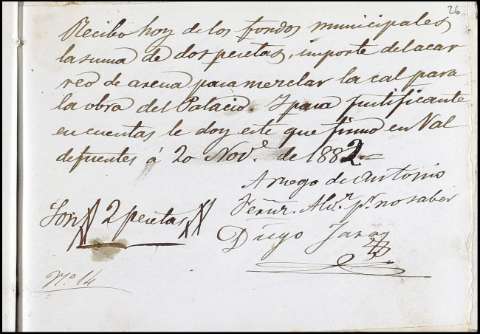 26
Recibo hoy de los fondos municipales
la suma de dos pesetas, importe del acar
reo de arena para mezclar la cal para
la obra del Palacio. Y para justificante
en cuentas le doy este que firmo en Val
defuentes á 20 Novᵉ. de 1882.=
A ruego de Antonio
pʳ. no saber
Son 2 pesetas
Diego
Nº. 14